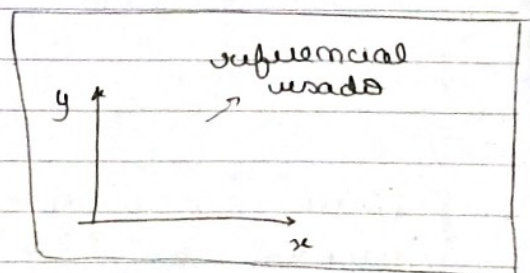 referencial
usado
y
x